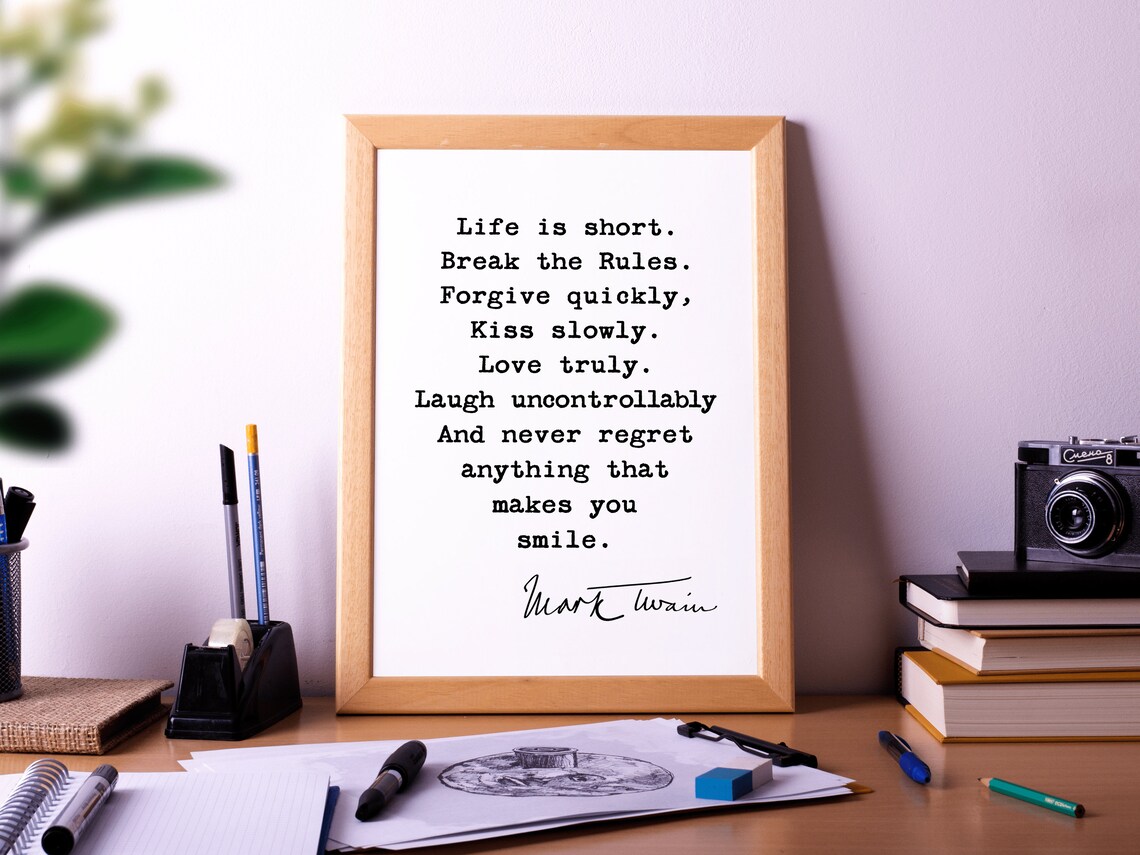 Life is short.
Break the Rules.
Forgive quickly,
Kiss slowly.
Love truly.
Laugh uncontrollably
And never regret
anything that
makes you
smile.
Mark Twain
Смена
8